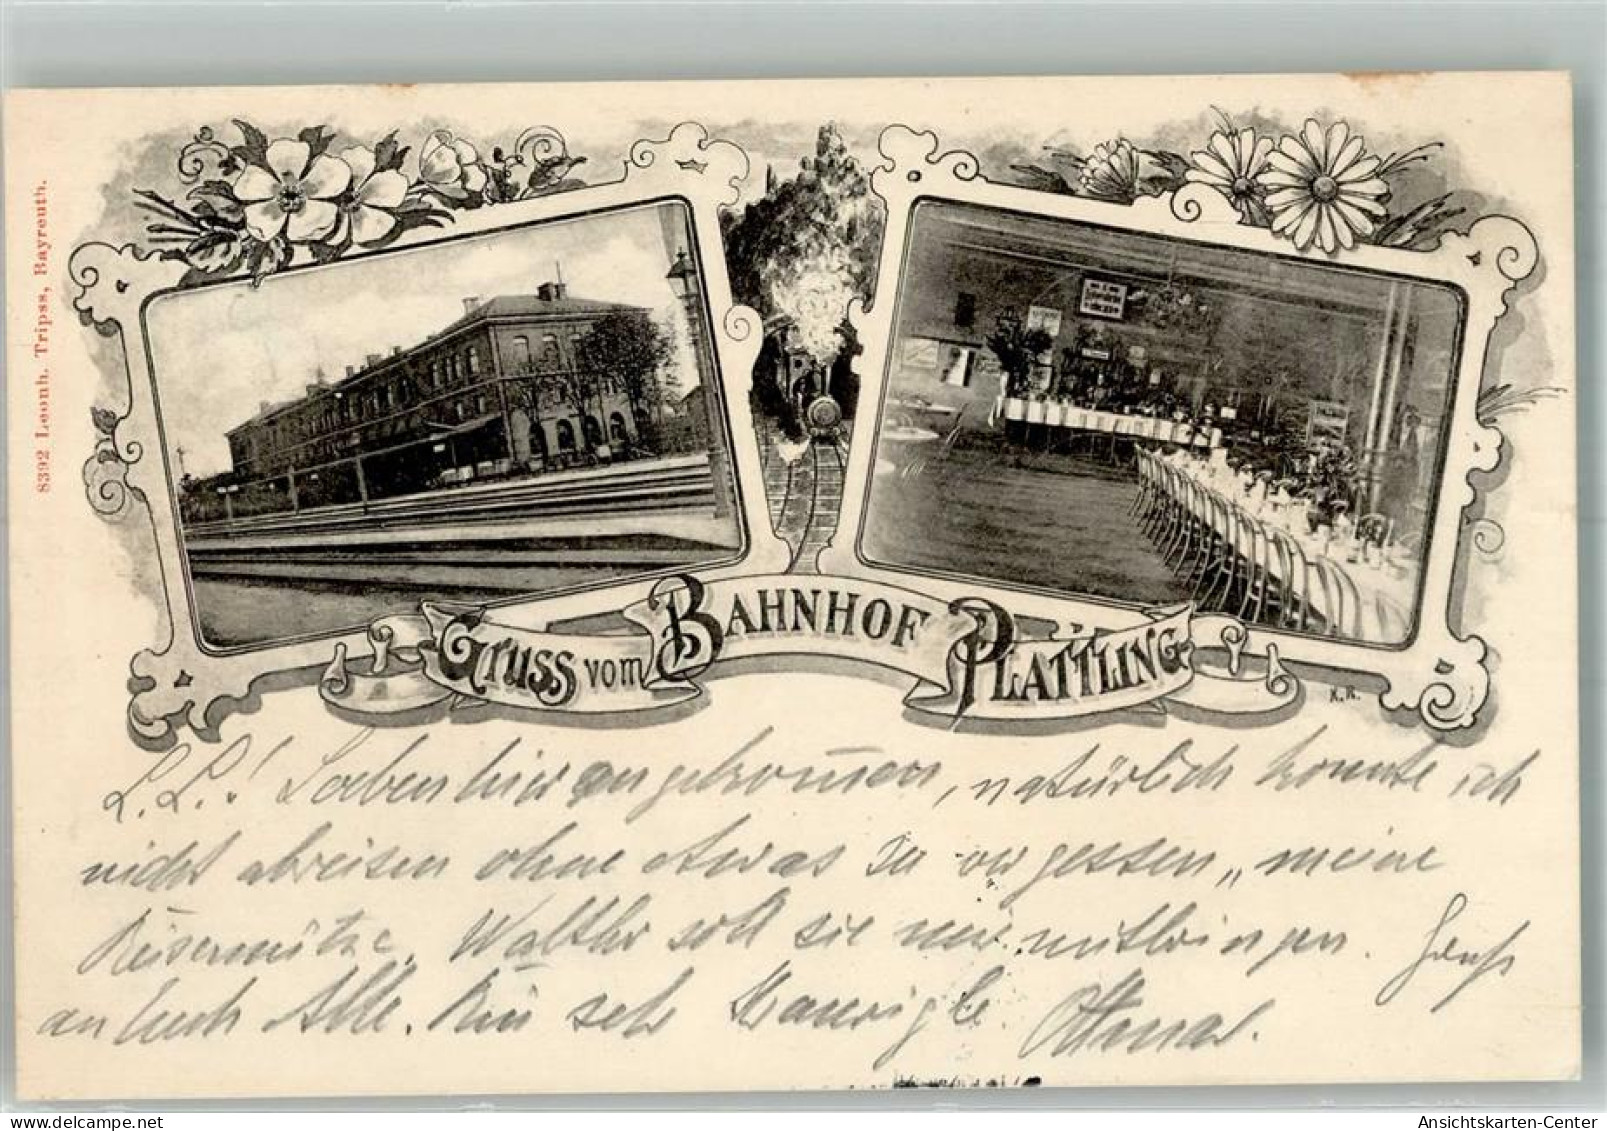 8392 Leonh. Tripss, Bayreuth.
GRUSS VOM BAHNHOF PLATTLING
K.R.
L. L.! Soeben hier angekommen, natürlich konnte ich
nicht abreisen ohne etwas zu vergessen, „meine
Reisemütze. Walther soll sie mir mitbringen. Gruß
an Euch Alle. Bin sehr Ottmar.
Ansichtskarten-Center